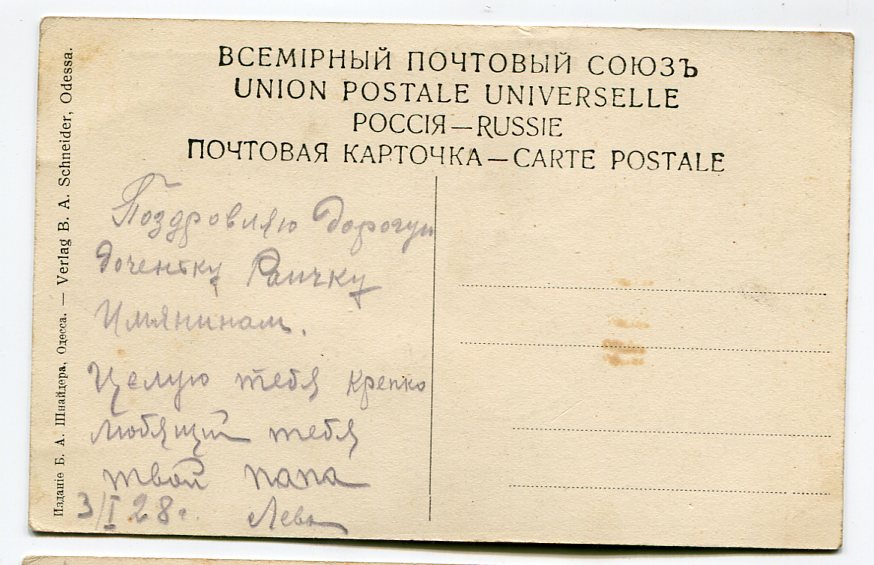 ВСЕМІРНЫЙ ПОЧТОВЫЙ СОЮЗЪ
UNION POSTALE UNIVERSELLE
РОССІЯ—RUSSIE
ПОЧТОВАЯ КАРТОЧКА—CARTE POSTALE
Поздровляю дорогую
доченьку Раичку
Имянинам.
Целую тебя крепко
Любящий тебя
твой папа
3/I 28 г. Лева
Изданіе Б. А. Шнайдера, Одесса. — Verlag B. A. Schneider, Odessa.